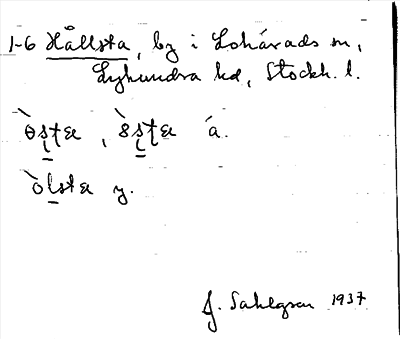 1-6 Hållsta, by i Lohärads sn,
Lyhundra hd, Stockh. l.
òsta, òsta ä.
òlsta y.
J. Sahlgren 1937